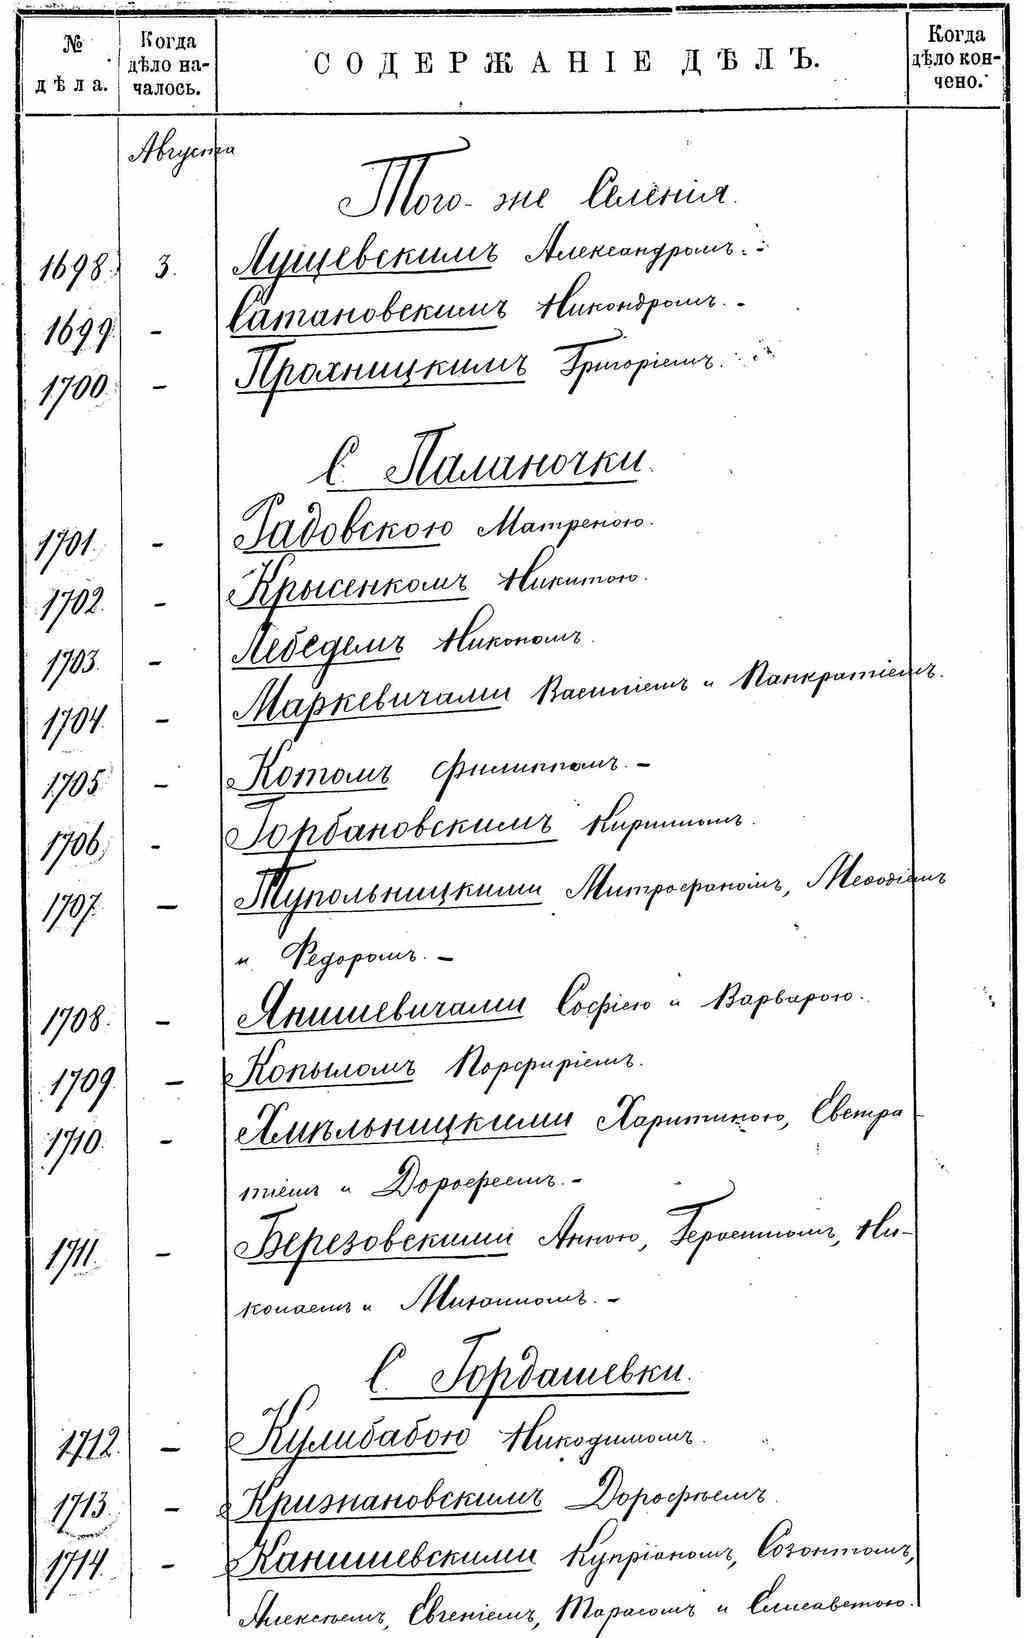 № дѣла. Когда дѣло началось. СОДЕРЖАНІЕ ДѢЛЪ. Когда дѣло кончено.
Августа
Того-же Селенія.
1698 3. Лущевскимъ Александромъ. -
1699 - Сатановскимъ Никондромъ. -
1700 - Прохницкимъ Григоріемъ.
С. Паланочки.
1701. - Радовскою Матреною.
1702. - Крысенкомъ Никитою.
1703. - Лебедемъ Никономъ.
1704. - Маркевичами Василіемъ и Панкратіемъ.
1705 - Котомъ Филиппомъ. -
1706 - Горбановскимъ Кирилломъ.
1707. - Тупольницкими Митрофаномъ, Меѳодіемъ
и Ѳедоромъ. -
1708. - Янишевичами Софіею и Варварою.
1709. - Копыломъ Порфиріемъ.
1710. - Хмѣльницкими Харитиною, Евстра-
тіемъ и Дорофеемъ. -
1711. - Березовскими Анною, Герасимомъ, Ни-
колаемъ и Михаиломъ. -
С. Гордашевки.
1712. - Кулибабою Никодимомъ.
1713. - Крижановскимъ Дорофѣемъ.
1714. - Канишевскими Купріаномъ, Созонтомъ,
Алексѣемъ, Евгеніемъ, Тарасомъ и Елисаветою.